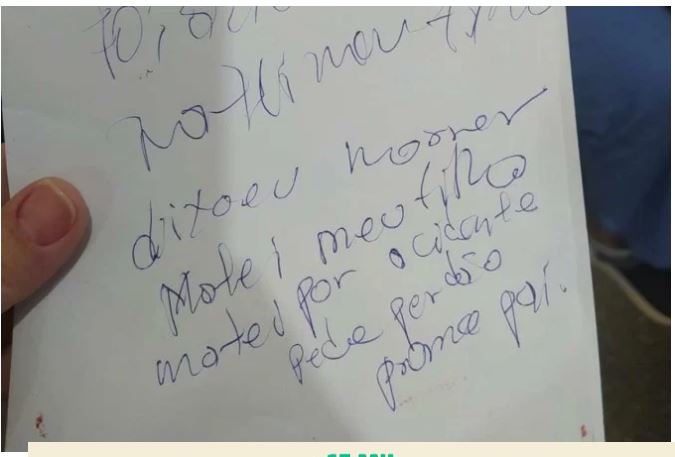 foi
matei meu
ditoeu morrer
Matei meu filho
matei por acidante
pede perdão
prome pai.